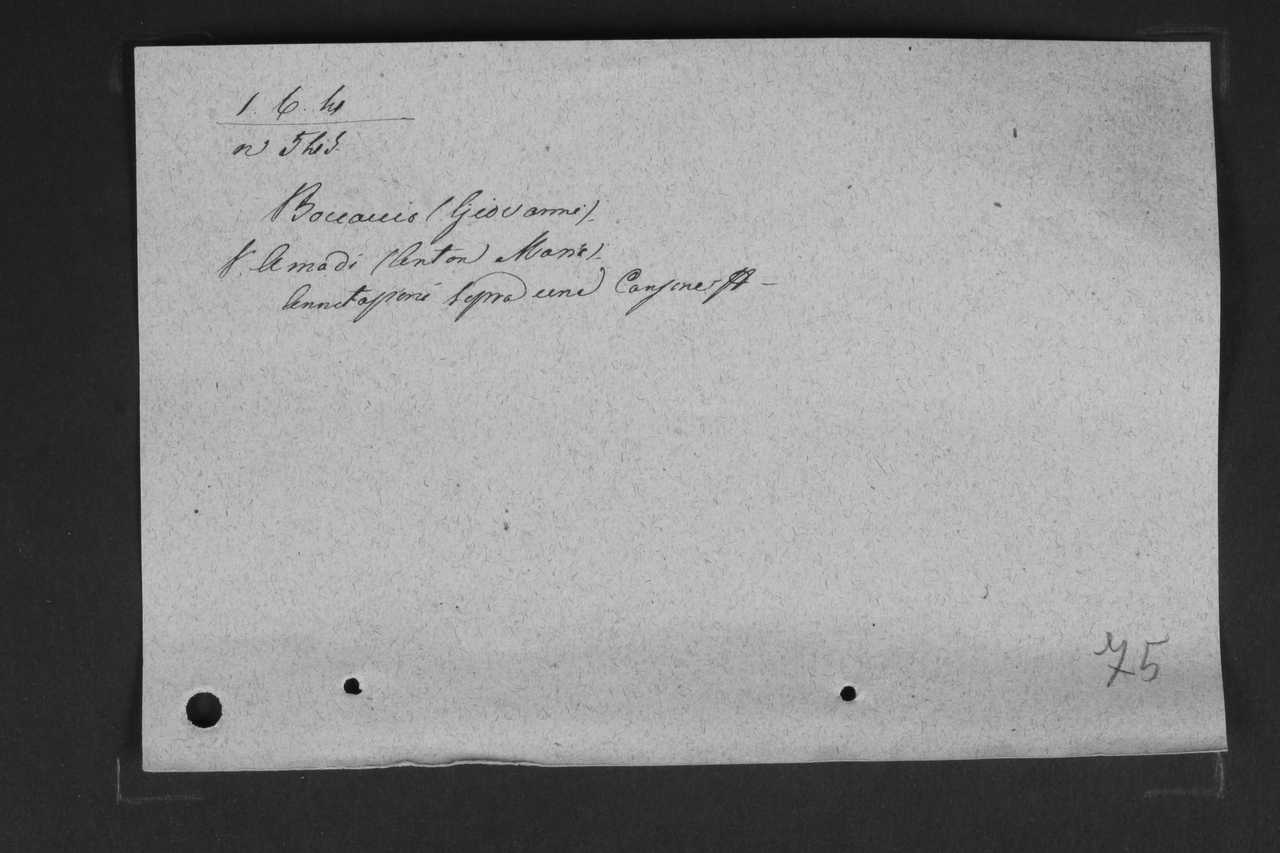 1. 6. 4
n 545
Boccaccio (Giovanni).
V. Amadi (Anton Maria).
Annotazioni sopra una Canzone
75